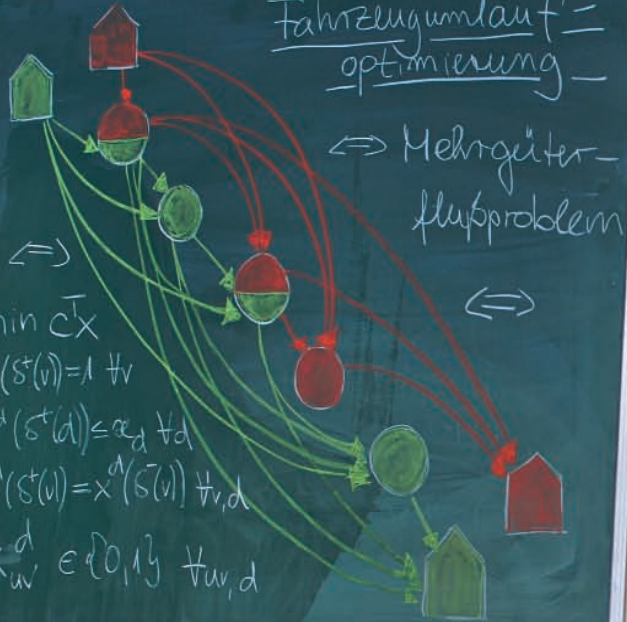 Fahrzeugumlauf=
optimierung
<=> Mehrgüter-
flußproblem
<=>
<=>
min cᵀx
(δ⁺(v))=1 ∀v
ᵈ(δ⁺(d))≤ϰ_d ∀d
ᵈ(δ⁺(v))=xᵈ(δ⁻(v)) ∀v,d
xᵈ_uv ∈{0,1} ∀uv,d